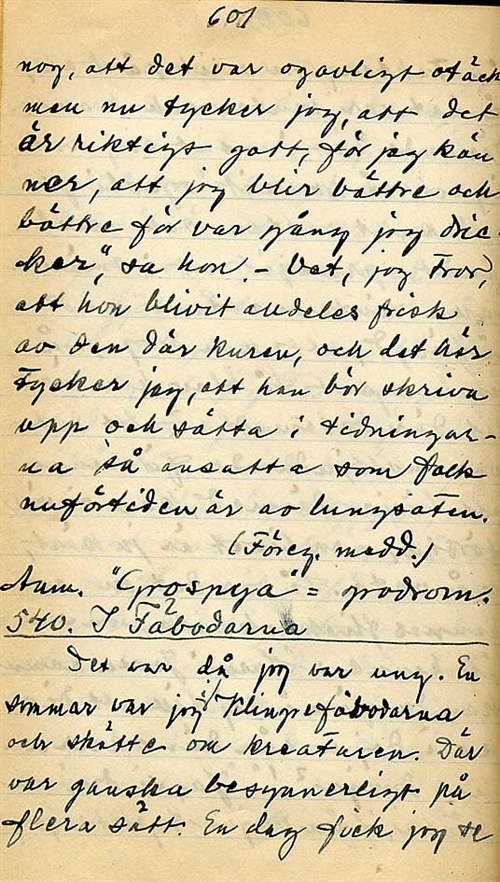 601
nog, att det var ogavligt otäck
men nu tycker jag, att det
är riktigt gott, för jag kän
ner, att jag blir bättre och
bättre för var gång jag dric-
ker", sa hon. - Vet, jag tror,
att hon blivit alldeles frisk
av den där kuren, och det här
tycker jag, att han bör skriva
upp och sätta i tidningar-
na så ansatta som folk
nuförtiden är av lungsoten.
(Föreg. medd.)
Anm. "Grospya" = grodrom.
540. I Fäbodarna
Det var då jag var ung. En
sommar var jag i Klingefäbodarna
och skötte om kreaturen. Där
var ganska besynnerligt på
flera sätt. En dag fick jag se